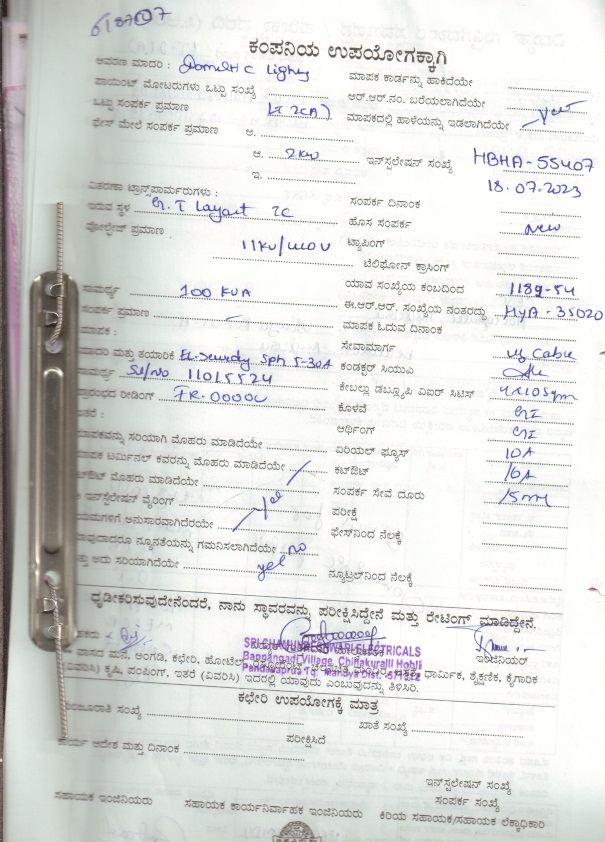 ಕಂಪನಿಯ ಉಪಯೋಗಕ್ಕಾಗಿ
ಆವರಣ ಮಾದರಿ : Domestic Lights ಮಾಪಕ ಕಾರ್ಡನ್ನು ಹಾಕಿದೆಯೇ
ಪಾಯಿಂಟ್ ಮೋಟರುಗಳು ಒಟ್ಟು ಸಂಖ್ಯೆ ಆರ್.ಆರ್.ನಂ. ಬರೆಯಲಾಗಿದೆಯೇ
ಒಟ್ಟು ಸಂಪರ್ಕ ಪ್ರಮಾಣ ಮಾಪಕದಲ್ಲಿ ಹಾಳೆಯನ್ನು ಇಡಲಾಗಿದೆಯೇ Yes
ಫೇಸ್ ಮೇಲೆ ಸಂಪರ್ಕ ಪ್ರಮಾಣ ಅ.
ಆ. 2KW ಇನ್‌ಸ್ಟಲೇಷನ್ ಸಂಖ್ಯೆ HBHA-55407
ಇ. 18.07.2023
ವಿತರಣಾ ಟ್ರಾನ್ಸ್‌ಫಾರ್ಮರುಗಳು : ಸಂಪರ್ಕ ದಿನಾಂಕ
ಇರುವ ಸ್ಥಳ G.T Layout 2C ಹೊಸ ಸಂಪರ್ಕ New
ವೋಲ್ಟೇಜ್ ಪ್ರಮಾಣ 11KV/440V ಟ್ಯಾಪಿಂಗ್
ಟೆಲಿಫೋನ್ ಕ್ರಾಸಿಂಗ್
ಸಾಮರ್ಥ್ಯ 100 KVA ಯಾವ ಸಂಖ್ಯೆಯ ಕಂಬದಿಂದ 1189-54
ಸಂಪರ್ಕ ಪ್ರಮಾಣ ಈ.ಆರ್.ಆರ್. ಸಂಖ್ಯೆಯ ನಂತರದ್ದು HYA-35020
ಮಾಪಕ : ಮಾಪಕ ಓದುವ ದಿನಾಂಕ
ಸೇವಾಮಾರ್ಗ UG Cable
ಮಾದರಿ ಮತ್ತು ತಯಾರಿಕೆ 5-30A ಕಂಡಕ್ಟರ್ ಸಿಯುಎ
ಸಾಮರ್ಥ್ಯ Sl/No 11015524 ಕೇಬಲ್ಲು ಡಬ್ಲ್ಯೂಪಿ ವಿಐರ್ ಸಿಟಿಸ್ 4x10Sqm
ಪ್ರಾರಂಭದ ರೀಡಿಂಗ್ FR-00000 ಕೊಳವೆ GI
ಇತರೆ : ಆರ್ಥಿಂಗ್ GI
ಮಾಪಕವನ್ನು ಸರಿಯಾಗಿ ಮೊಹರು ಮಾಡಿದೆಯೇ ಏರಿಯಲ್ ಫ್ಯೂಸ್ 10A
ಮಾಪಕ ಟರ್ಮಿನಲ್ ಕವರನ್ನು ಮೊಹರು ಮಾಡಿದೆಯೇ ಕಟ್‌ಔಟ್ 16A
ಕಟ್‌ಔಟ್ ಮೊಹರು ಮಾಡಿದೆಯೇ ಸಂಪರ್ಕ ಸೇವೆ ದೂರು 15m
ಇನ್‌ಸ್ಟಲೇಷನ್ ವೈರಿಂಗ್ Yes ಪರೀಕ್ಷೆ
ನಿಯಮಗಳಿಗೆ ಅನುಸಾರವಾಗಿದೆರೆಯೇ ಫೇಸ್‌ನಿಂದ ನೆಲಕ್ಕೆ
ಯಾವುದಾದರೂ ನ್ಯೂನತೆಯನ್ನು ಗಮನಿಸಲಾಗಿದೆಯೇ no
ಮತ್ತು ಅದು ಸರಿಯಾಗಿದೆಯೇ yes ನ್ಯೂಟ್ರಲ್‌ನಿಂದ ನೆಲಕ್ಕೆ
ಧೃಡೀಕರಿಸುವುದೇನೆಂದರೆ, ನಾನು ಸ್ಥಾವರವನ್ನು ಪರೀಕ್ಷಿಸಿದ್ದೇನೆ ಮತ್ತು ರೇಟಿಂಗ್ ಮಾಡಿದ್ದೇನೆ.
SRI CHAMUNDESHWARI ELECTRICALS
ಇಂಜಿನಿಯರ್
Bappangadi Village, Chinakuralli Hobli
ಮಾದರಿ ಮನೆ, ಅಂಗಡಿ, ಕಛೇರಿ, ಹೋಟೆಲ್ ಧಾರ್ಮಿಕ, ಶೈಕ್ಷಣಿಕ, ಕೈಗಾರಿಕ
Pandavapura Tq. Mandya Dist.
(ವಿವರಿಸಿ) ಕೃಷಿ, ಪಂಪಿಂಗ್, ಇತರೆ (ವಿವರಿಸಿ) ಇದರಲ್ಲಿ ಯಾವುದು ಎಂಬುವುದನ್ನು ತಿಳಿಸಿರಿ.
ಕಛೇರಿ ಉಪಯೋಗಕ್ಕೆ ಮಾತ್ರ
ಮಂಜೂರಾತಿ ಸಂಖ್ಯೆ ಖಾತೆ ಸಂಖ್ಯೆ
ಪರೀಕ್ಷಿಸಿದೆ
ಕಾರ್ಯ ಆದೇಶ ಮತ್ತು ದಿನಾಂಕ
ಇನ್‌ಸ್ಟಲೇಷನ್ ಸಂಖ್ಯೆ
ಸಂಪರ್ಕ ಸಂಖ್ಯೆ
ಸಹಾಯಕ ಇಂಜಿನಿಯರು ಸಹಾಯಕ ಕಾರ್ಯನಿರ್ವಾಹಕ ಇಂಜಿನಿಯರು ಕಿರಿಯ ಸಹಾಯಕ/ಸಹಾಯಕ ಲೆಕ್ಕಾಧಿಕಾರಿ